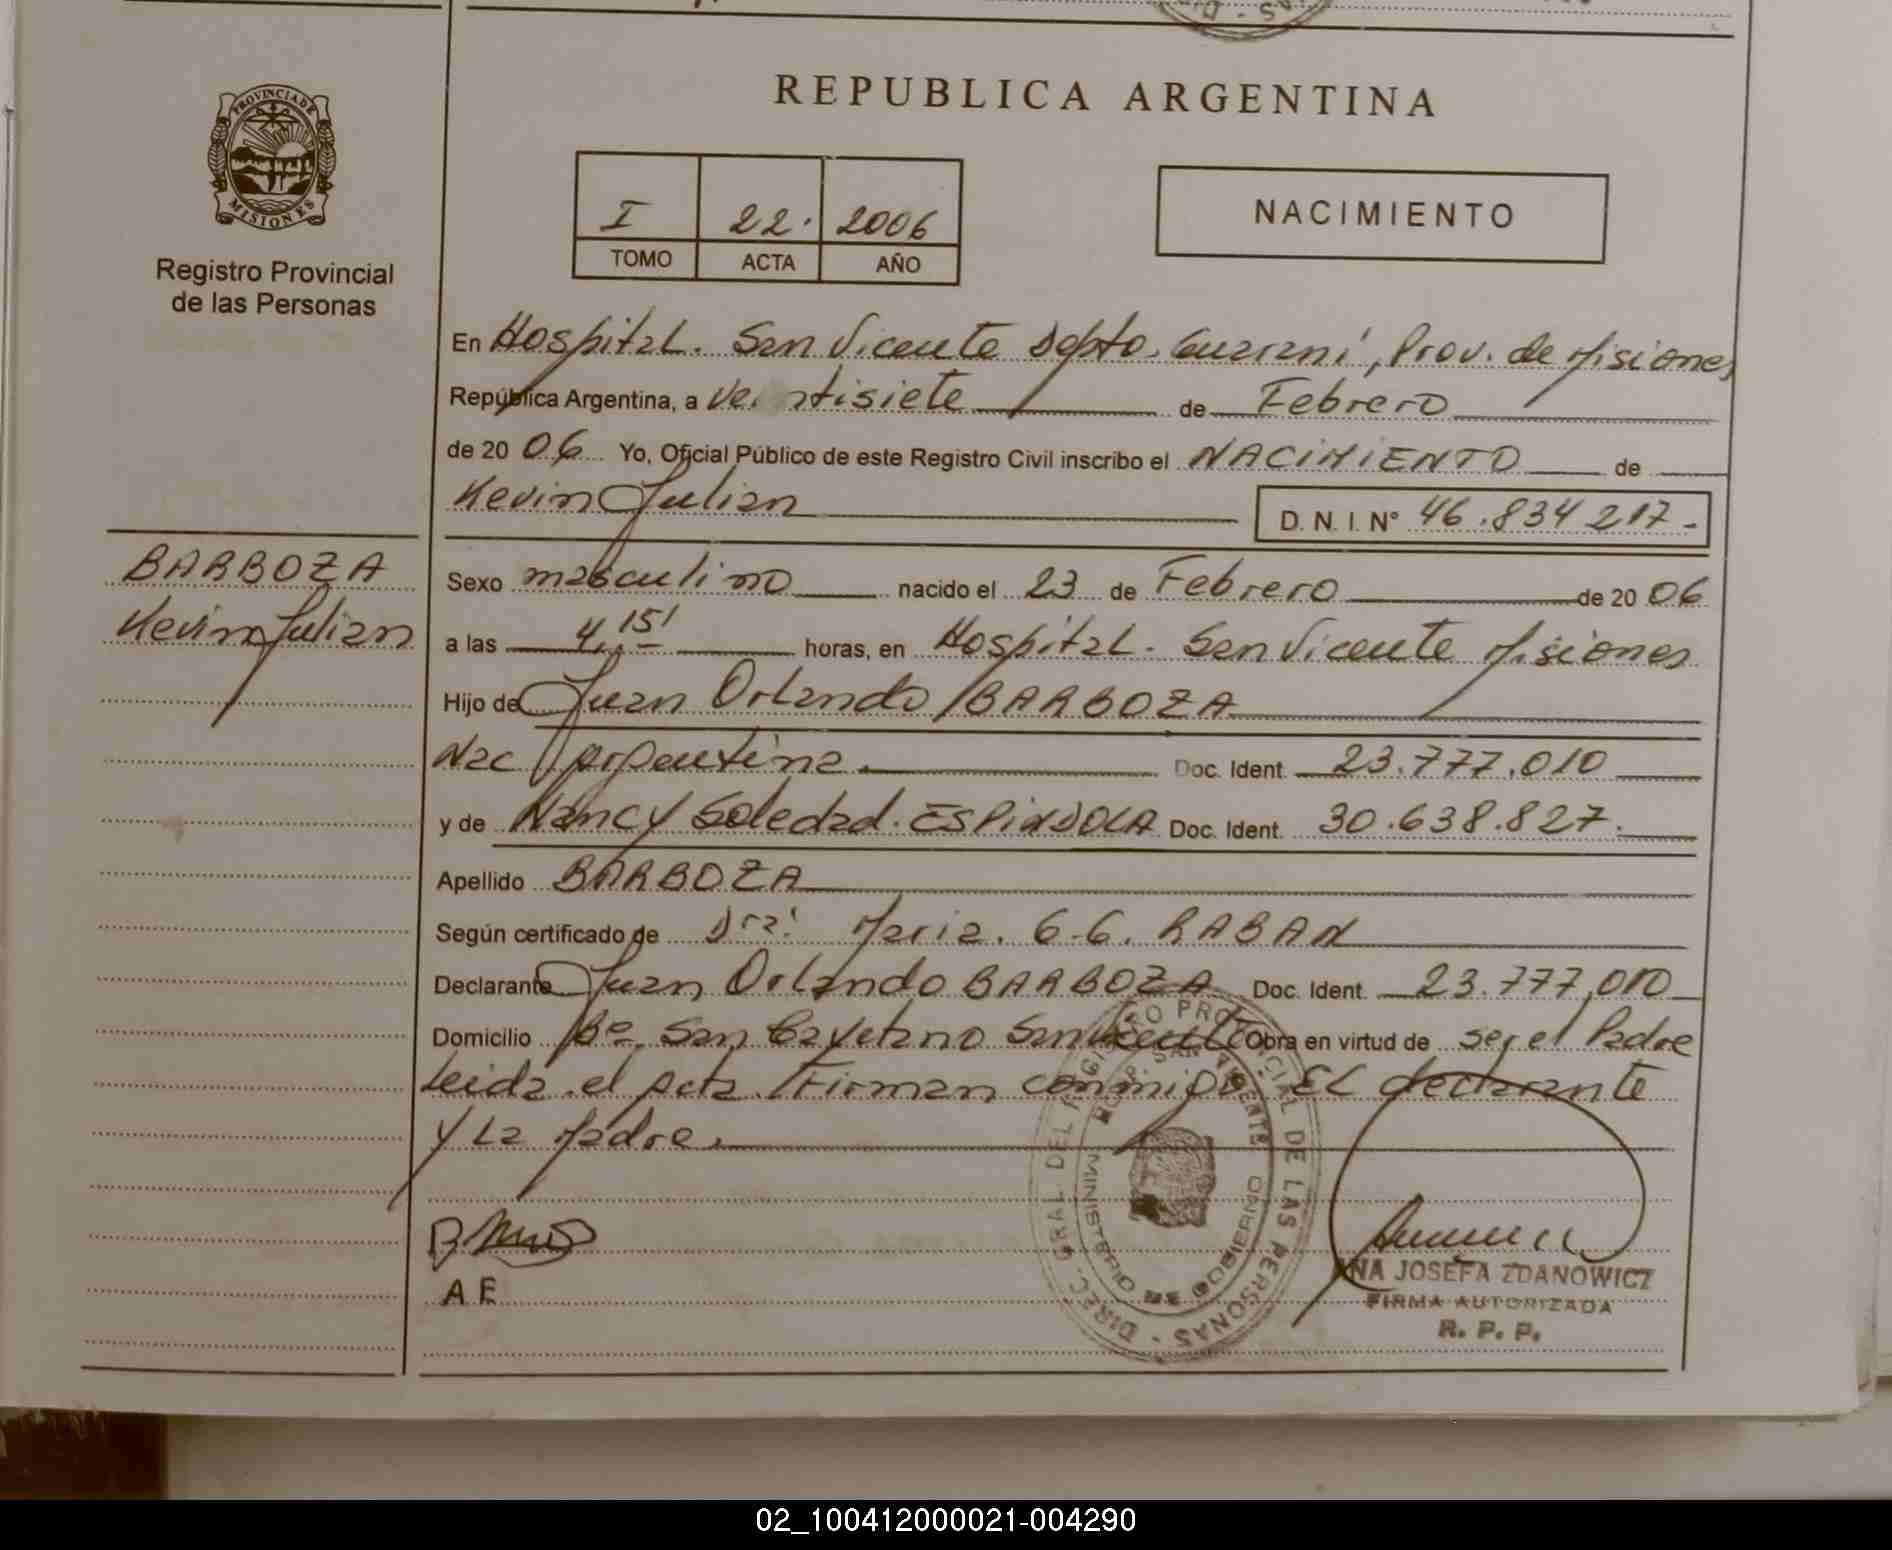 REPUBLICA ARGENTINA
PROVINCIA DE MISIONES
Registro Provincial
de las Personas
I 22. 2006
TOMO ACTA AÑO
NACIMIENTO
En Hospital. San Vicente Depto. Guaraní, Prov. de Misiones
República Argentina, a veintisiete de Febrero
de 2006 Yo, Oficial Público de este Registro Civil inscribo el NACIMIENTO de
Kevin Julian D. N. I. N° 46.834 217-
BARBOZA
Kevin Julian
Sexo masculino nacido el 23 de Febrero de 2006
a las 4.15' horas, en Hospital. San Vicente Misiones
Hijo de Juan Orlando BARBOZA
Nac Argentina. Doc. Ident. 23.777.010
y de Nancy Soledad. ESPINDOLA Doc. Ident. 30.638.827.
Apellido BARBOZA
Según certificado de Dra. Maria. G.G. RABAN
Declarante Juan Orlando BARBOZA Doc. Ident. 23.777.010
Domicilio Bº San Cayetano San Vicente Obra en virtud de ser el Padre
Leida el Acta Firman conmigo EL declarante
y La Madre.
DIREC. GRAL DEL REGISTRO PROVINCIAL DE LAS PERSONAS
SAN VICENTE
MINISTERIO DE GOBIERNO
A E
ANA JOSEFA ZDANOWICZ
FIRMA AUTORIZADA
R. P. P.
02_100412000021-004290